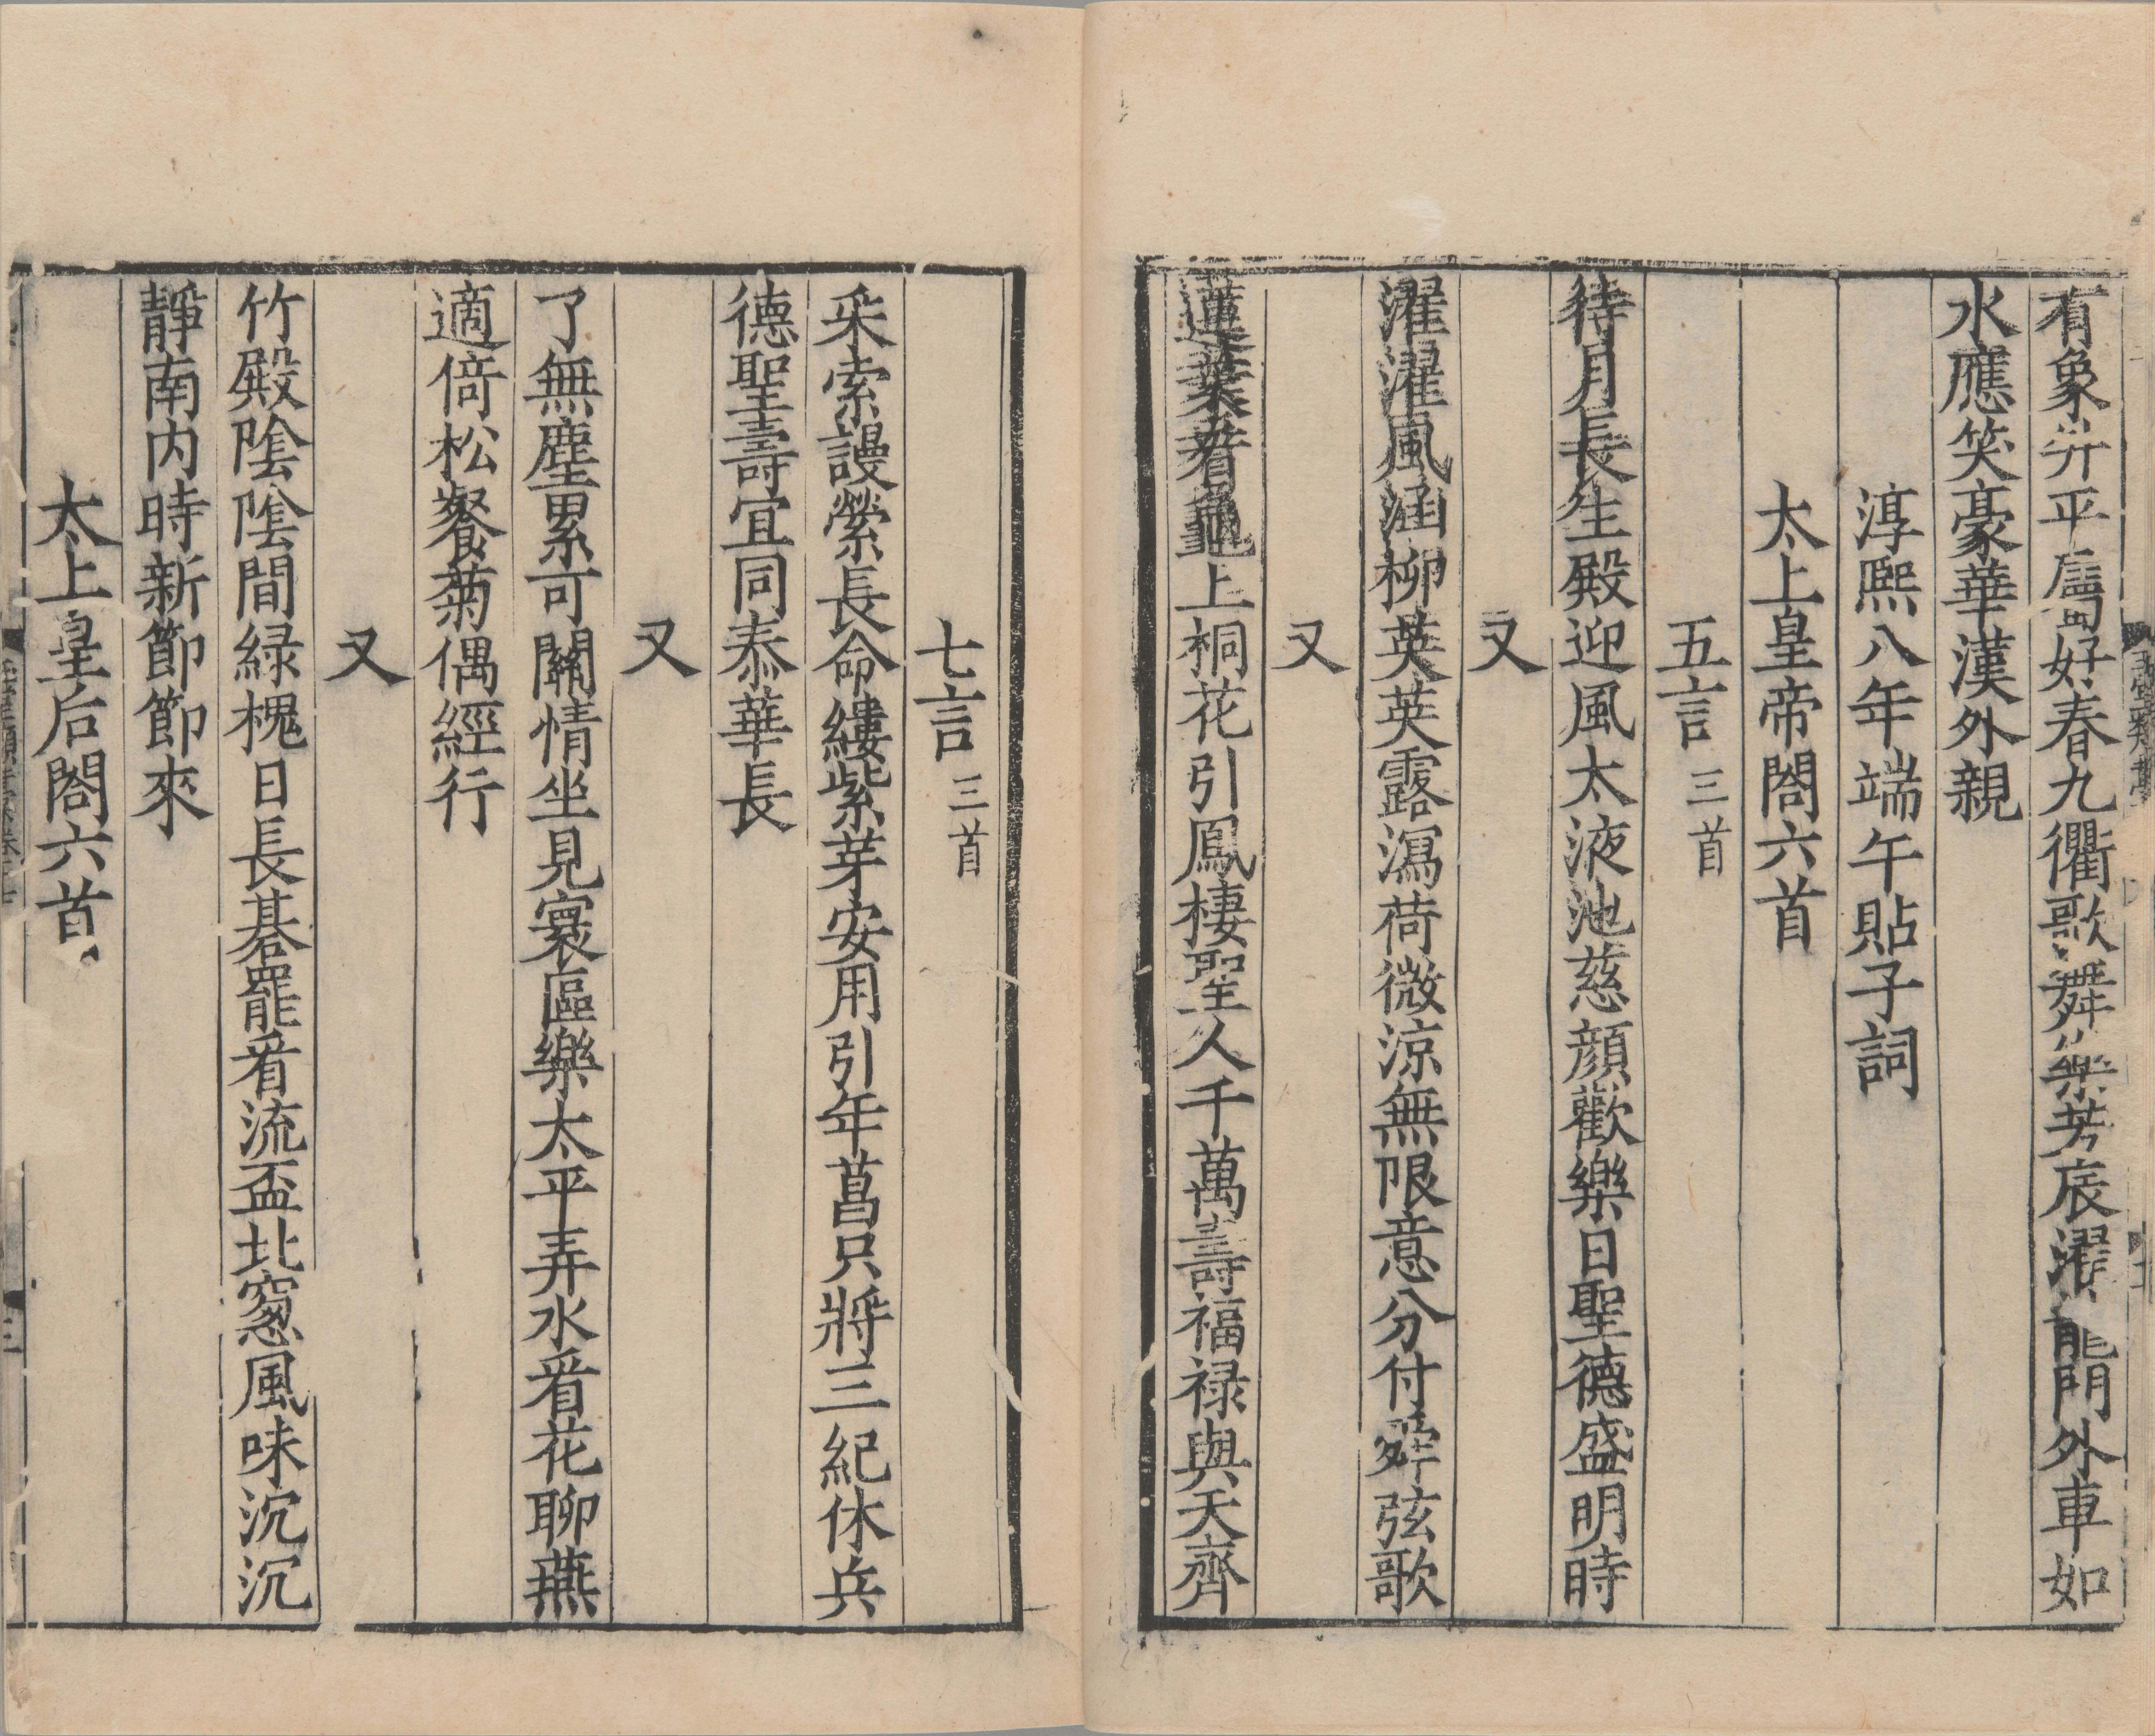 有象升平屬好春九衢歌舞樂芳辰濯龍門外車如
水應笑豪華漢外親
淳熙八年端午貼子詞
太上皇帝閤六首
五言三首
待月長生殿迎風太液池慈顔歡樂日聖德盛明時
又
濯濯風涵柳英英露瀉荷微涼無限意分付舜弦歌
又
蓮葉看龜上桐花引鳳棲聖人千萬壽福禄與天齊
七言三首
采索謾縈長命縷紫芽安用引年菖只將三紀休兵
德聖壽宜同泰華長
又
了無塵累可關情坐見寰區樂太平弄水看花聊燕
適倚松餐菊偶經行
又
竹殿陰陰間緑槐日長碁罷看流盃北窻風味沉沉
靜南内時新節節來
太上皇后閤六首